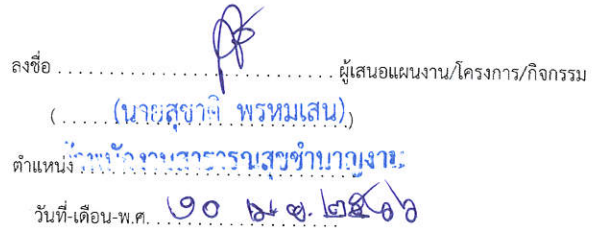 ลงชื่อ ................................ ผู้เสนอแผนงาน/โครงการ/กิจกรรม
(.....(นายสุชาติ พรหมเสน).)
ตำแหน่ง เจ้าพนักงานสาธารณสุขชำนาญงาน
วันที่-เดือน-พ.ศ. ๒๐ เม.ย. ๒๕๖๖